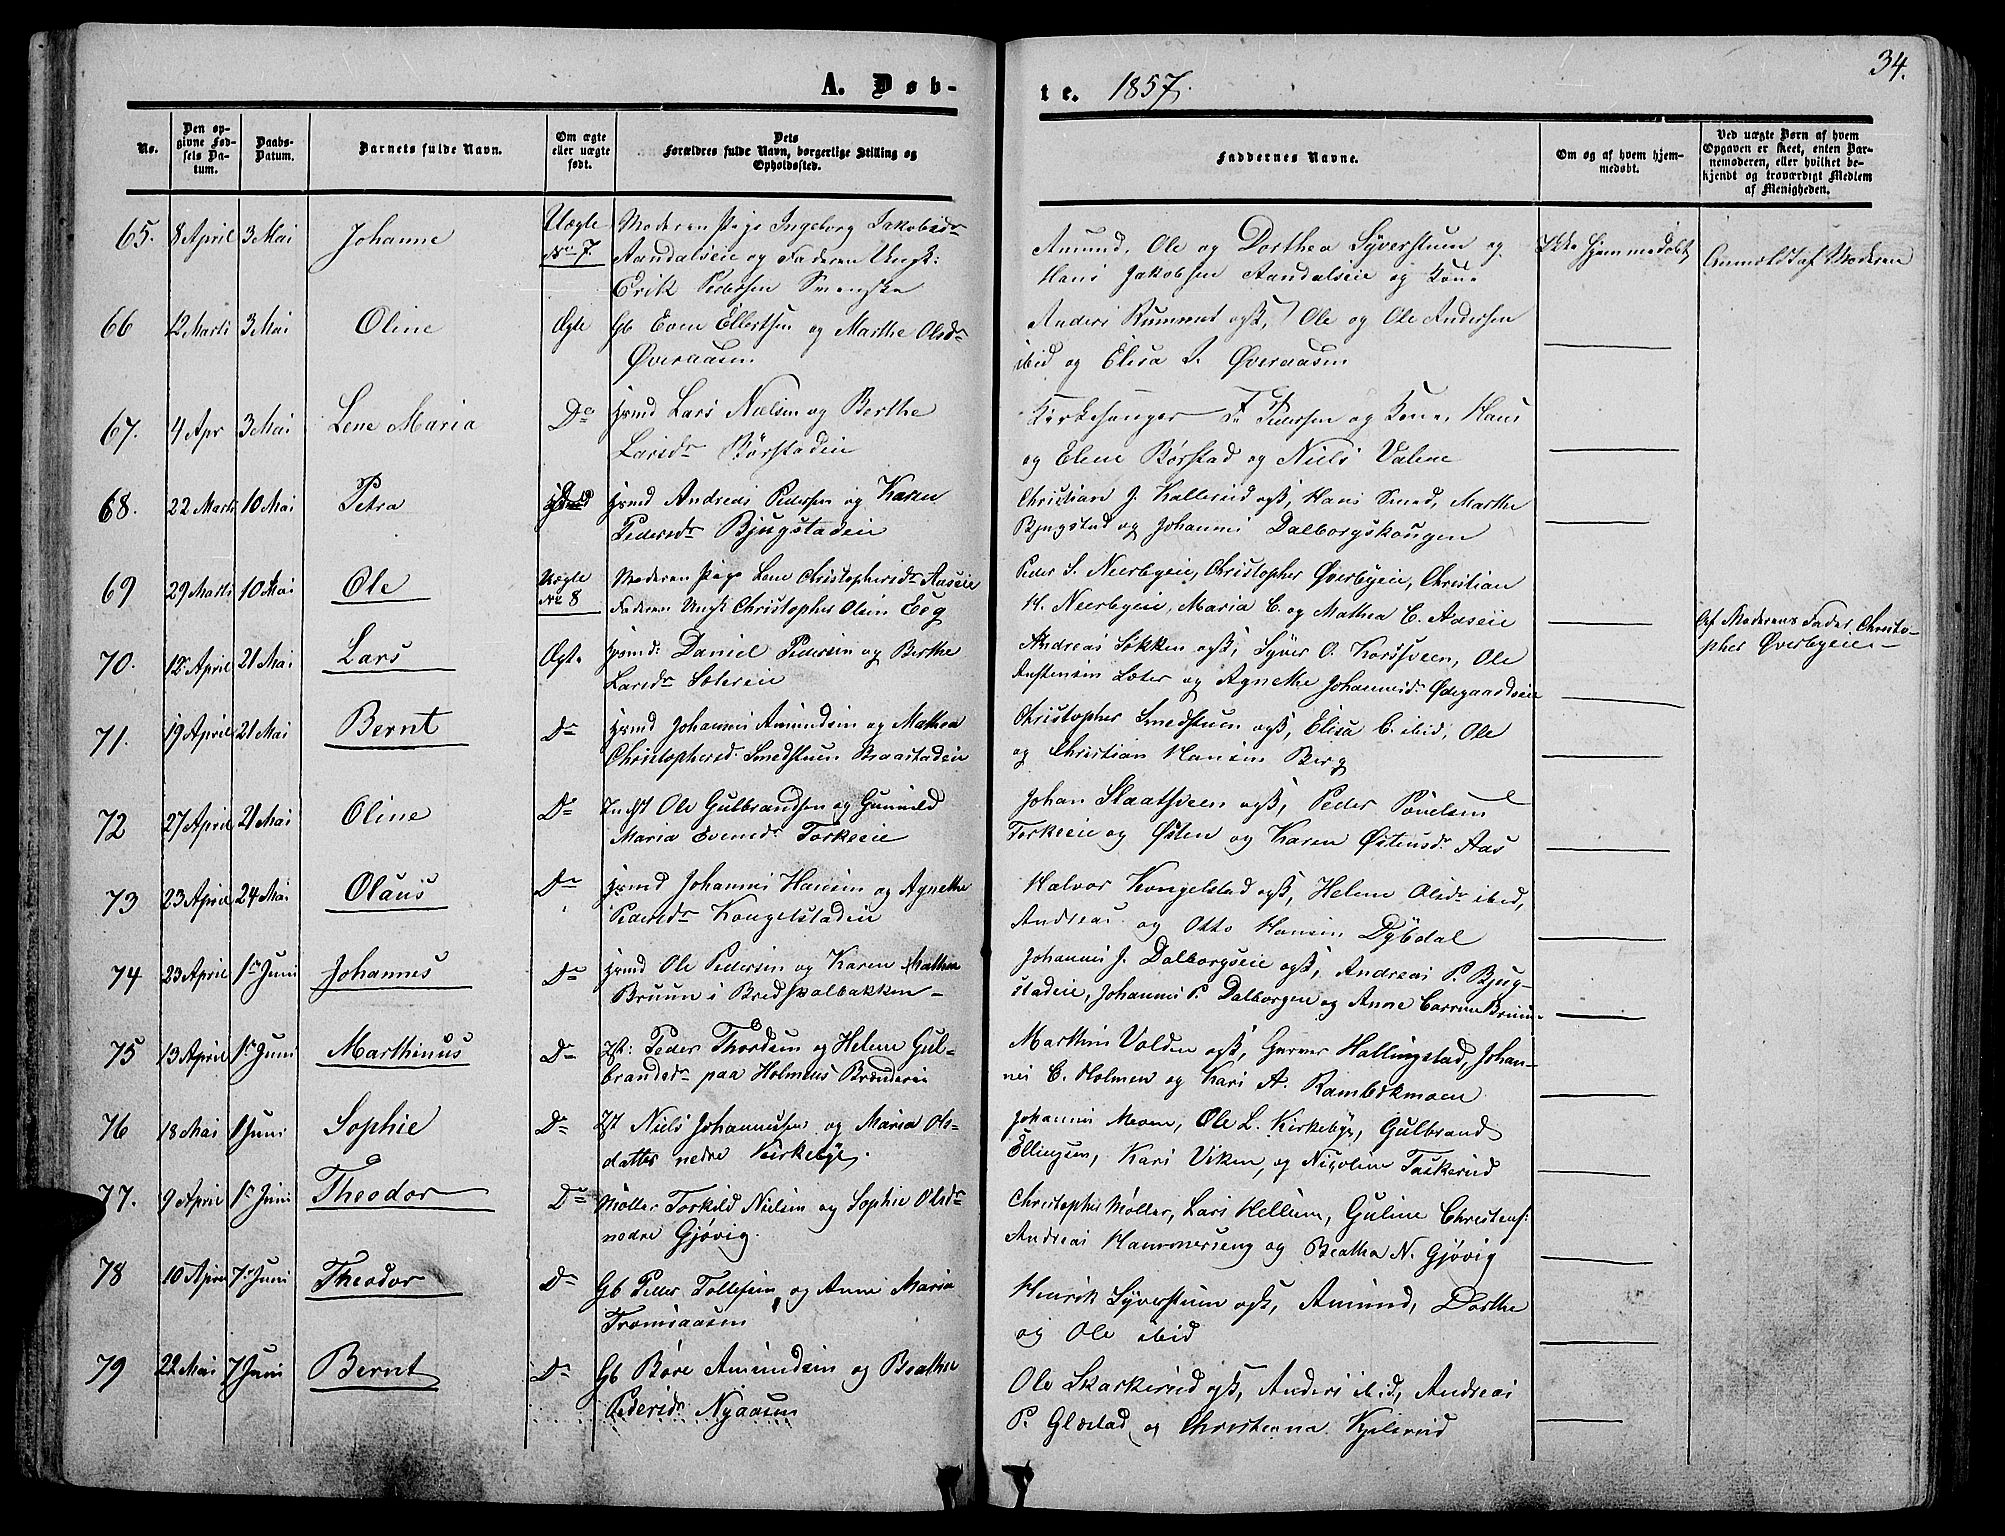 34.
A. Døb-
te. 1857.
No.
Den op-
givne Fød-
sels Da-
tum.
Daabs-
Datum.
Barnets fulde Navn.
Om ægte
eller uægte
født.
Dets
Forældres fulde Navn, borgerlige Stilling og
Opholdssted.
Faddernes Navne.
Om og af hvem hjem-
medøbt.
Ved uægte Børn af hvem
Opgaven er skeet, enten Bar-
nemoderen, eller hvilket be-
kjendt og troværdigt Medlem
af Menigheden.
65. 8 April 3 Mai Johanne Uægte No 7. Moderen Pige Ingeborg Jakobsdr
Aandalseie og Faderen Ungk:
Erik Pedersen Svenske
Amund, Ole og Dorthea Syverstuen og
Hans Jakobsen Aandalseie og Kone
Ikke hjemmedøbt Anmeldt af Moderen
66 12 Marts 3 Mai Oline Ægte Gb Even Ellertsen og Marthe Olsdr
Øveraasen
Anders Rummet ogs, Ole og Ole Andersen
ibid og Elisa Øveraasen
67. 4 Apr 3 Mai Lene Maria Do Hrmd Lars Nielsen og Berthe
Larsdr Børstadeie
Kirkesanger Pedersen og Kone, Hans
og Elene Børstad og Niels Valene
68. 22 Marts 10 Mai Petra Hrmd Andreas Pedersen og Karen
Pedersdr Bjugstadeie
Christian J. Kallerud ogs, Hans Smed, Marthe
Bjugstad og Johannes Dalborgskougen
69 29 Marts 10 Mai Ole Uægte No 8 Moderen Pige Lene Christophersdr Aaseie
Faderen Ungk Christopher Olsen Eeg
Peder S. Neerbyeie, Christopher Øverbyeie, Christian
H. Neerbyeie, Maria C. og Mathea C. Aaseie
Af Moderens Fader Christo-
pher Øverbyeie
70. 12 April 21 Mai Lars Ægte Hrmd: Daniel Pedersen og Berthe
Larsdr Sætereie
Andreas Løkken ogs, Syver O. Korsveen, Ole
Austensen Sæter og Agnethe Johannesdr Ødegaardseie
71. 19 April 21 Mai Bernt Do Hrmd Johannes Amundsen og Mathea
Christophersd: Smedstuen Braastadeie
Christopher Smedstuen ogs, Elisa C. ibid, Ole
og Christian Hansen Berg
72 27 April 21 Mai Oline Do Indst Ole Gulbrandsen og Gunild
Maria Evensdr Torkeeie
Johan Slaatsveen ogs, Peder Povelsen
Torkeeie og Østen og Karen Østensdr Aas
73 23 April 24 Mai Olaus Do Hrmd Johannes Hansen og Agnethe
Pedersdr Kongelstadeie
Halvor Kongelstad ogs, Helene Olsdr ibid,
Andreas og Otto Hansen Dybdal
74 23 April 1ste Juni Johannes Do Hrmd Ole Pedersen og Karen Mathea
Bruun i Bredskalbakken
Johannes J. Dalborgseie ogs, Andreas P. Bjug-
stadeie, Johannes P. Dalborgen og Anne Bruun
75 13 April 1ste Juni Marthinus Do Ist: Peder Thordsen og Helene Gul-
brandsdr paa Holmens Brænderi
Marthin Volden ogs, Gurner Hallingstad, Johan-
nes C. Holmen og Kari A. Rambekmoen
76 18 Mai 1 Juni Sophie Do Ist Niels Johannessen og Maria Ols-
datter nedre Kirkebye.
Johannes Moen, Ole L. Kirkebye, Gulbrand
Ellingsen, Kari Viken, og Nicoline Taskerud
77. 9 April 1ste Juni Theodor Do Møller Torkild Nielsen og Sophie Olsdr
nedre Gjøvig.
Christopher Møller, Lars Hellum, Guline Christens:
Andreas Hammerseng og Beatha N. Gjøvig
78 10 April 7de Juni Theodor Do Gb Peder Tollefsen og Anne Maria
Tromsaasen
Henrik Syverstuen ogs, Amund, Dorthe
og Ole ibid
79 22 Mai 7 Juni Bernt Do Gb Børe Amundsen og Beathe
Pedersdr Nyaasen
Ole Skarkerud ogs, Anders ibid, Andreas
P. Glæstad og Christenna Kjelerud